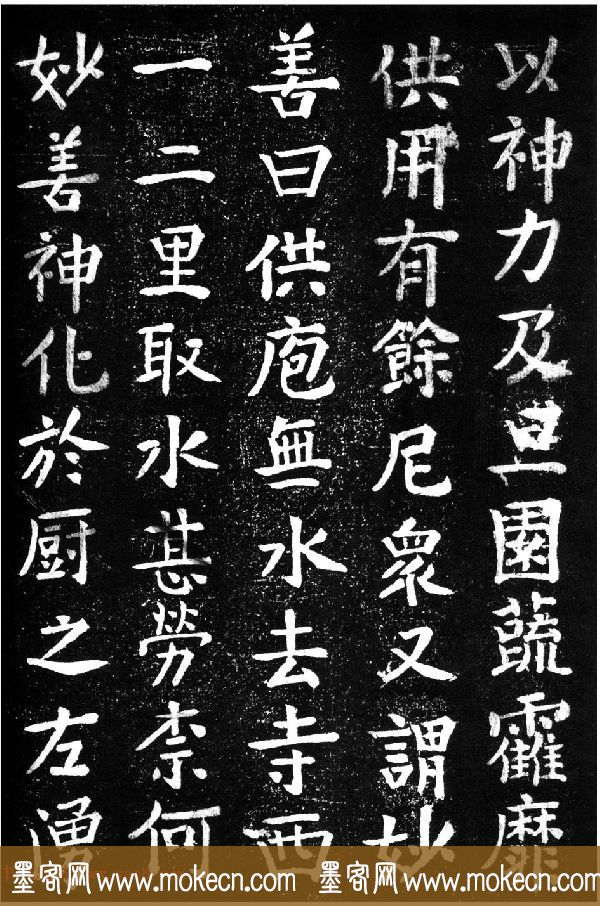 以神力及旦園蔬靃靡
供用有餘尼衆又謂妙
善曰供庖無水去寺西
一二里取水甚勞柰何
妙善神化於厨之左湧
墨客网 www.mokecn.com 墨客网 www.mokecn.com